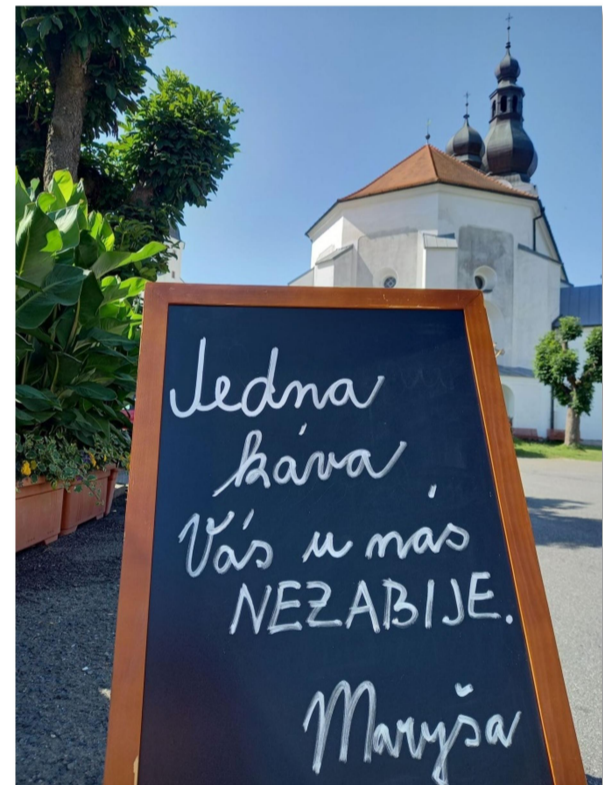 Jedna
káva
Vás u nás
NEZABIJE.
Maryša